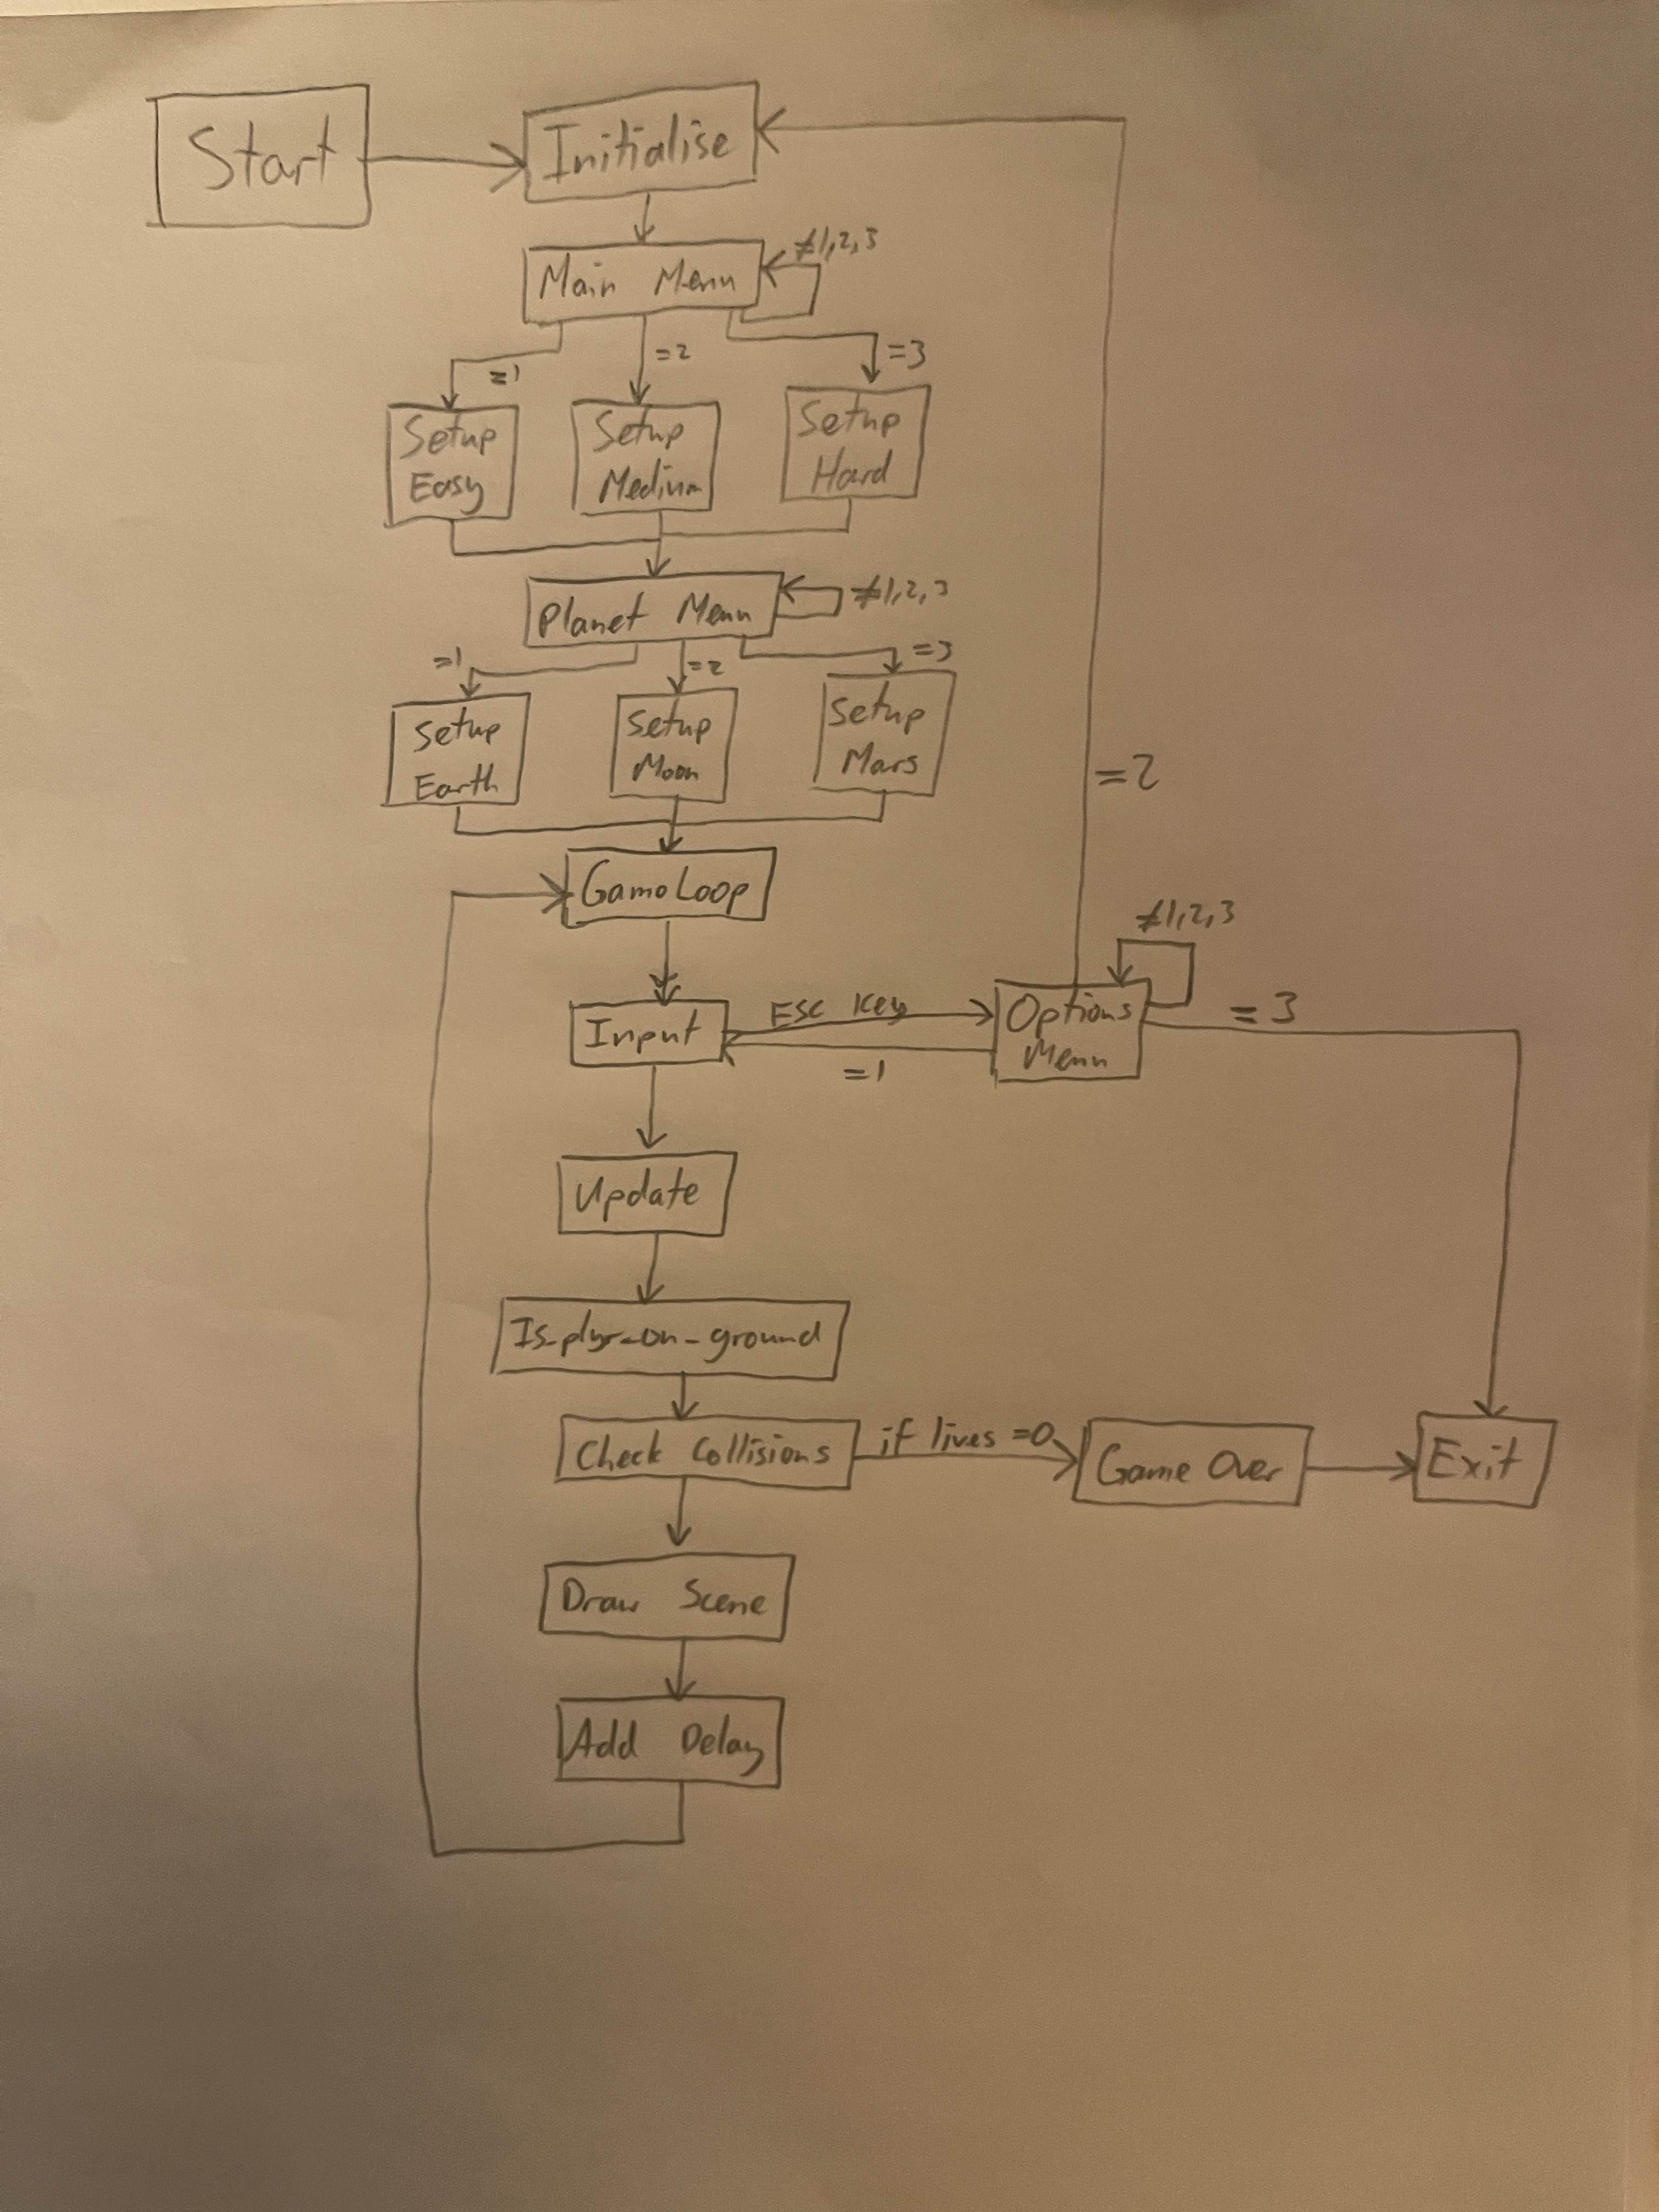 Start
Initialise
≠1,2,3
Main Menu
=1
=2
=3
Setup
Easy
Setup
Medium
Setup
Hard
Planet Menu
≠1,2,3
=1
=2
=3
Setup
Earth
Setup
Moon
Setup
Mars
=2
GameLoop
≠1,2,3
Input
ESC Key
=1
Options
Menu
=3
Update
Is_plyr_on_ground
Check Collisions
if lives =0
Game Over
Exit
Draw Scene
Add Delay